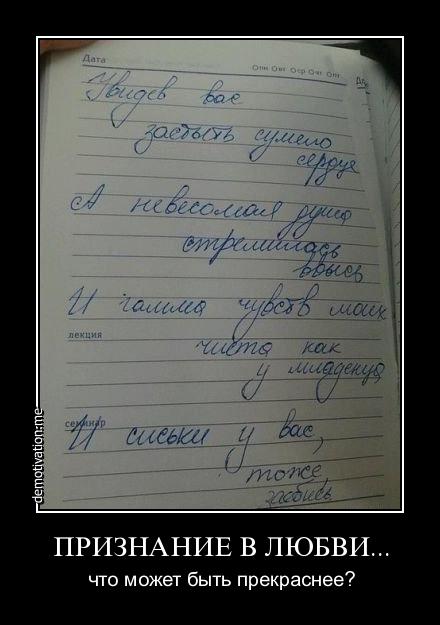 Дата
Опн Овт Оср Очт Опт
Увидев вас
застыть сумело
сердце
А невесомая душа
стремилась
ввысь
И гамма чувств моих
лекция
чиста как
у младенца
семинар
И сиськи у вас,
тоже,
заебись
demotivation.me
ПРИЗНАНИЕ В ЛЮБВИ...
что может быть прекраснее?